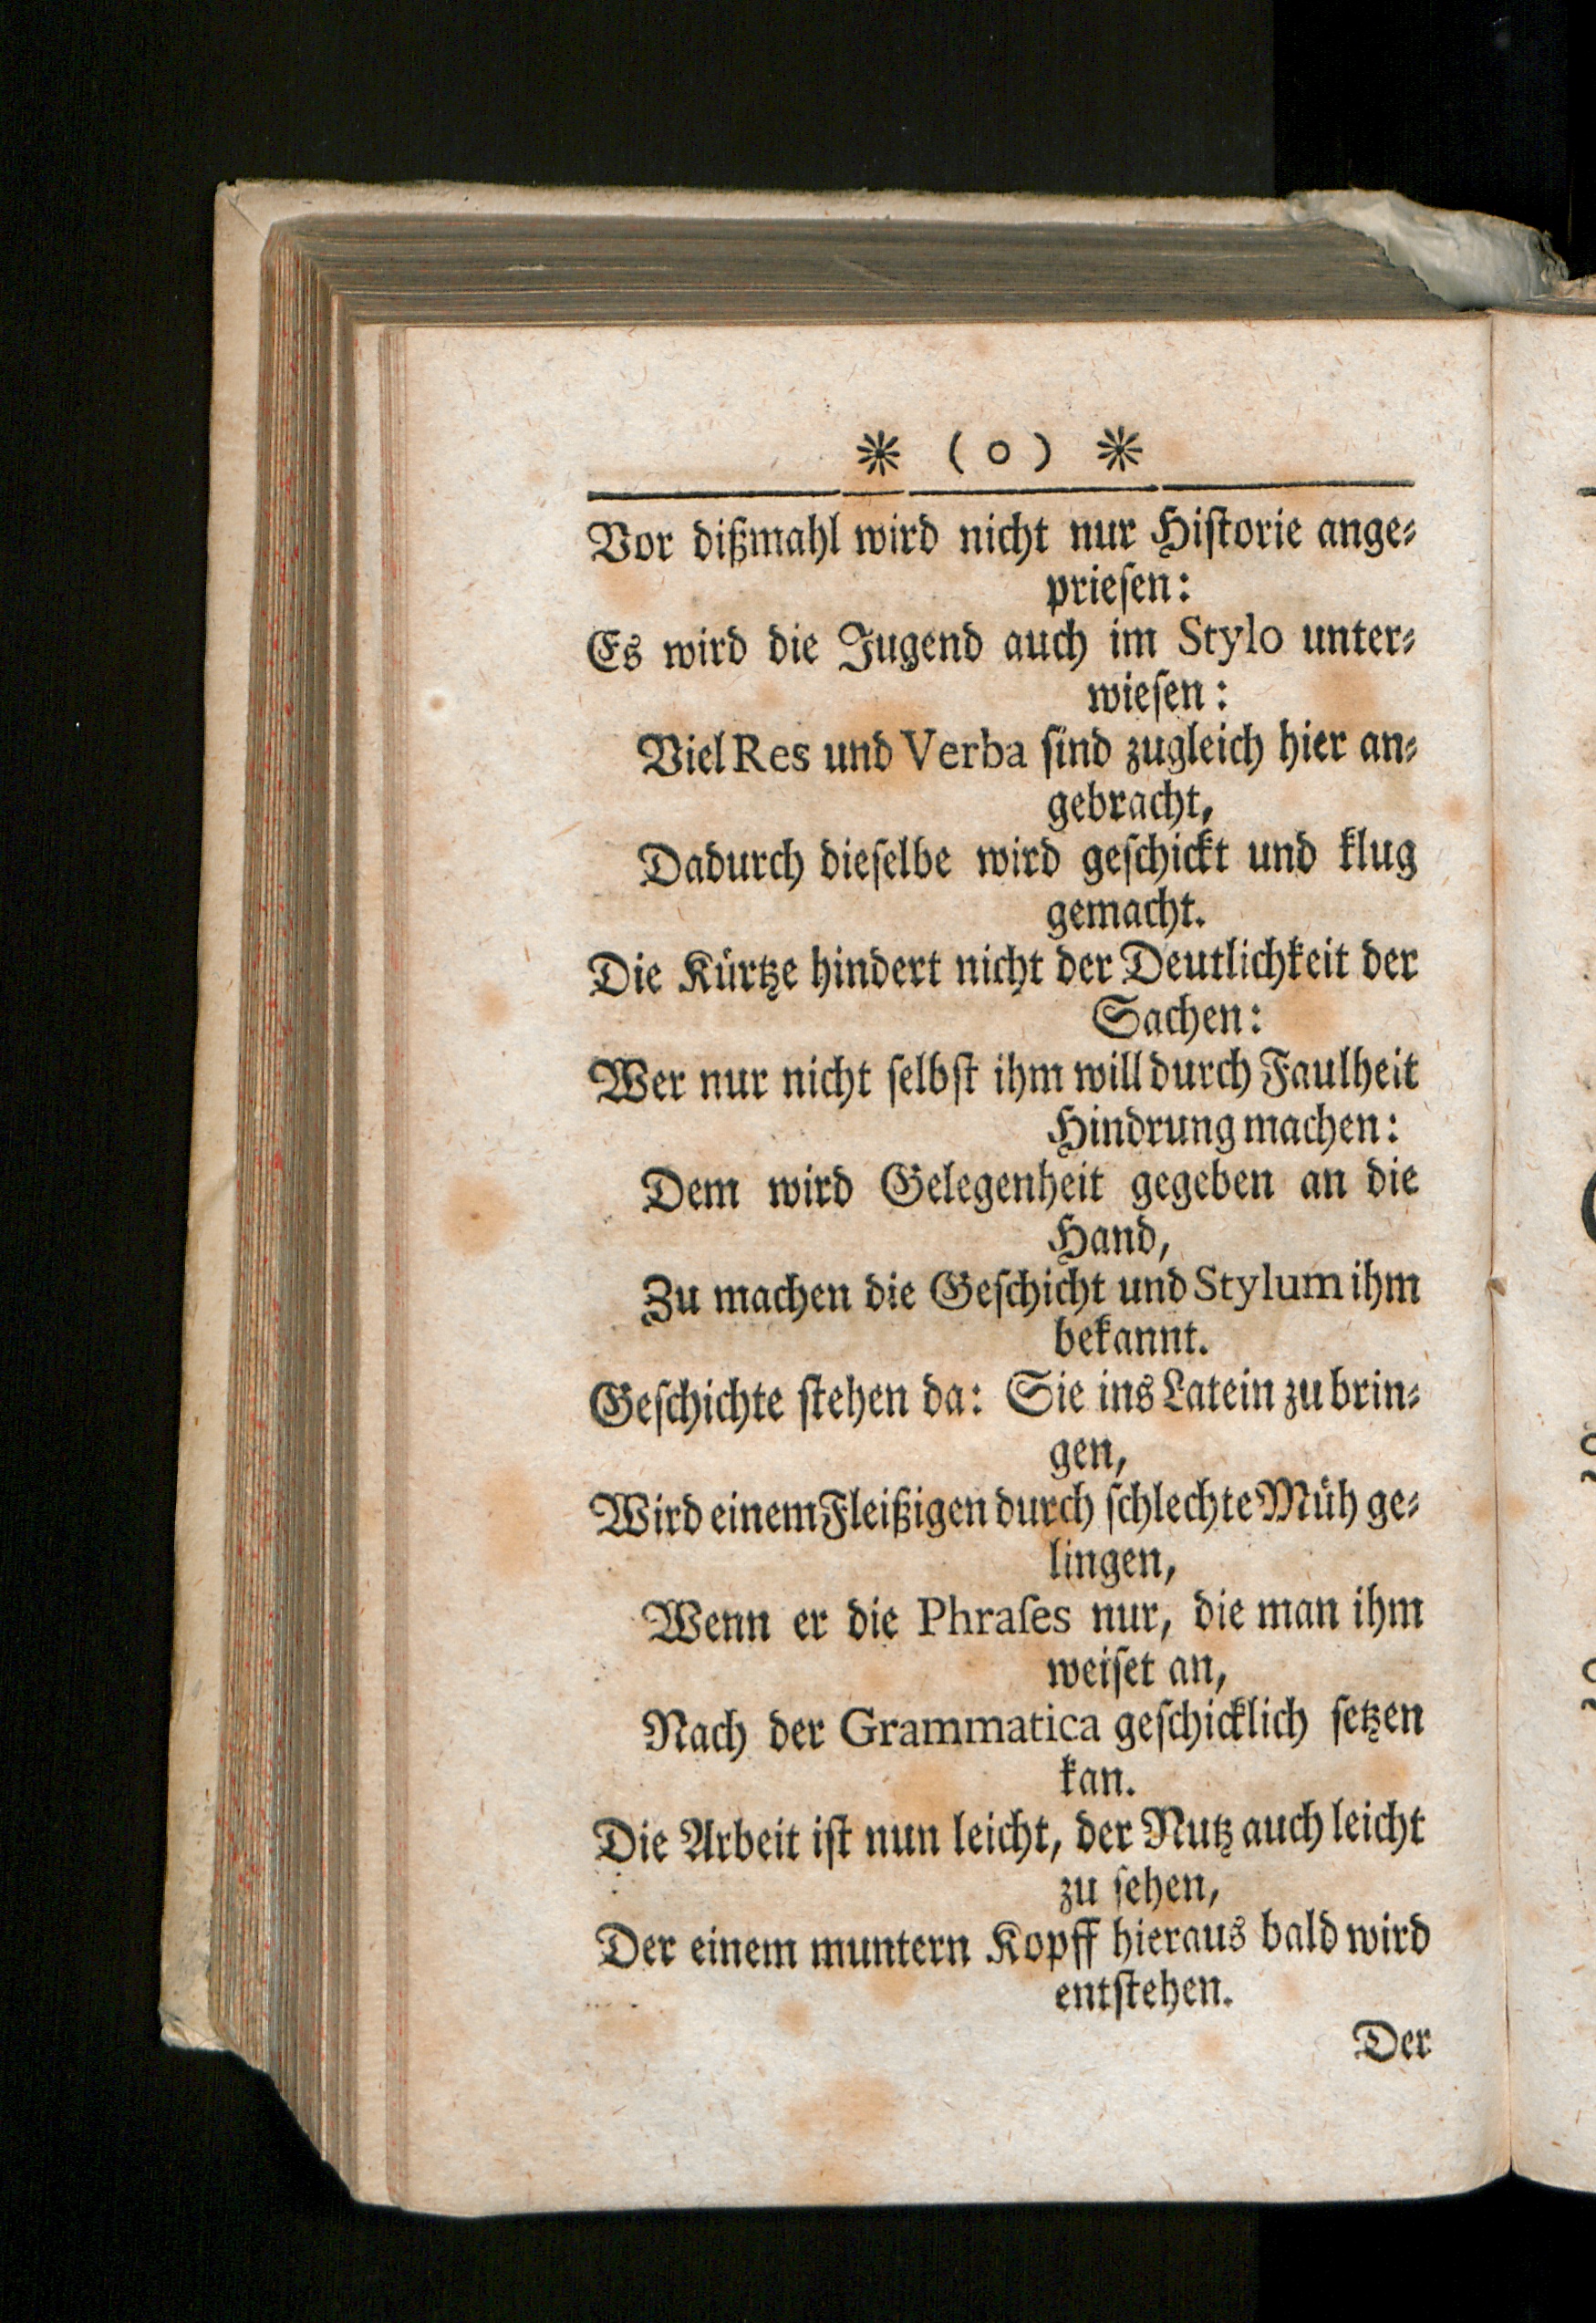 * ( o ) *
Vor dißmahl wird nicht nur Hiſtorie ange⸗
prieſen:
Es wird die Jugend auch im Stylo unter⸗
wieſen:
Viel Res und Verba ſind zugleich hier an⸗
gebracht,
Dadurch dieſelbe wird geſchickt und klug
gemacht.
Die Kürtze hindert nicht der Deutlichkeit der
Sachen:
Wer nur nicht ſelbſt ihm will durch Faulheit
Hindrung machen:
Dem wird Gelegenheit gegeben an die
Hand,
Zu machen die Geſchicht und Stylum ihm
bekannt.
Geſchichte ſtehen da: Sie ins Latein zu brin⸗
gen,
Wird einem Fleißigen durch ſchlechte Müh ge⸗
lingen,
Wenn er die Phraſes nur, die man ihm
weiſet an,
Nach der Grammatica geſchicklich ſetzen
kan.
Die Arbeit iſt nun leicht, der Nutz auch leicht
zu ſehen,
Der einem muntern Kopff hieraus bald wird
entſtehen.
Der